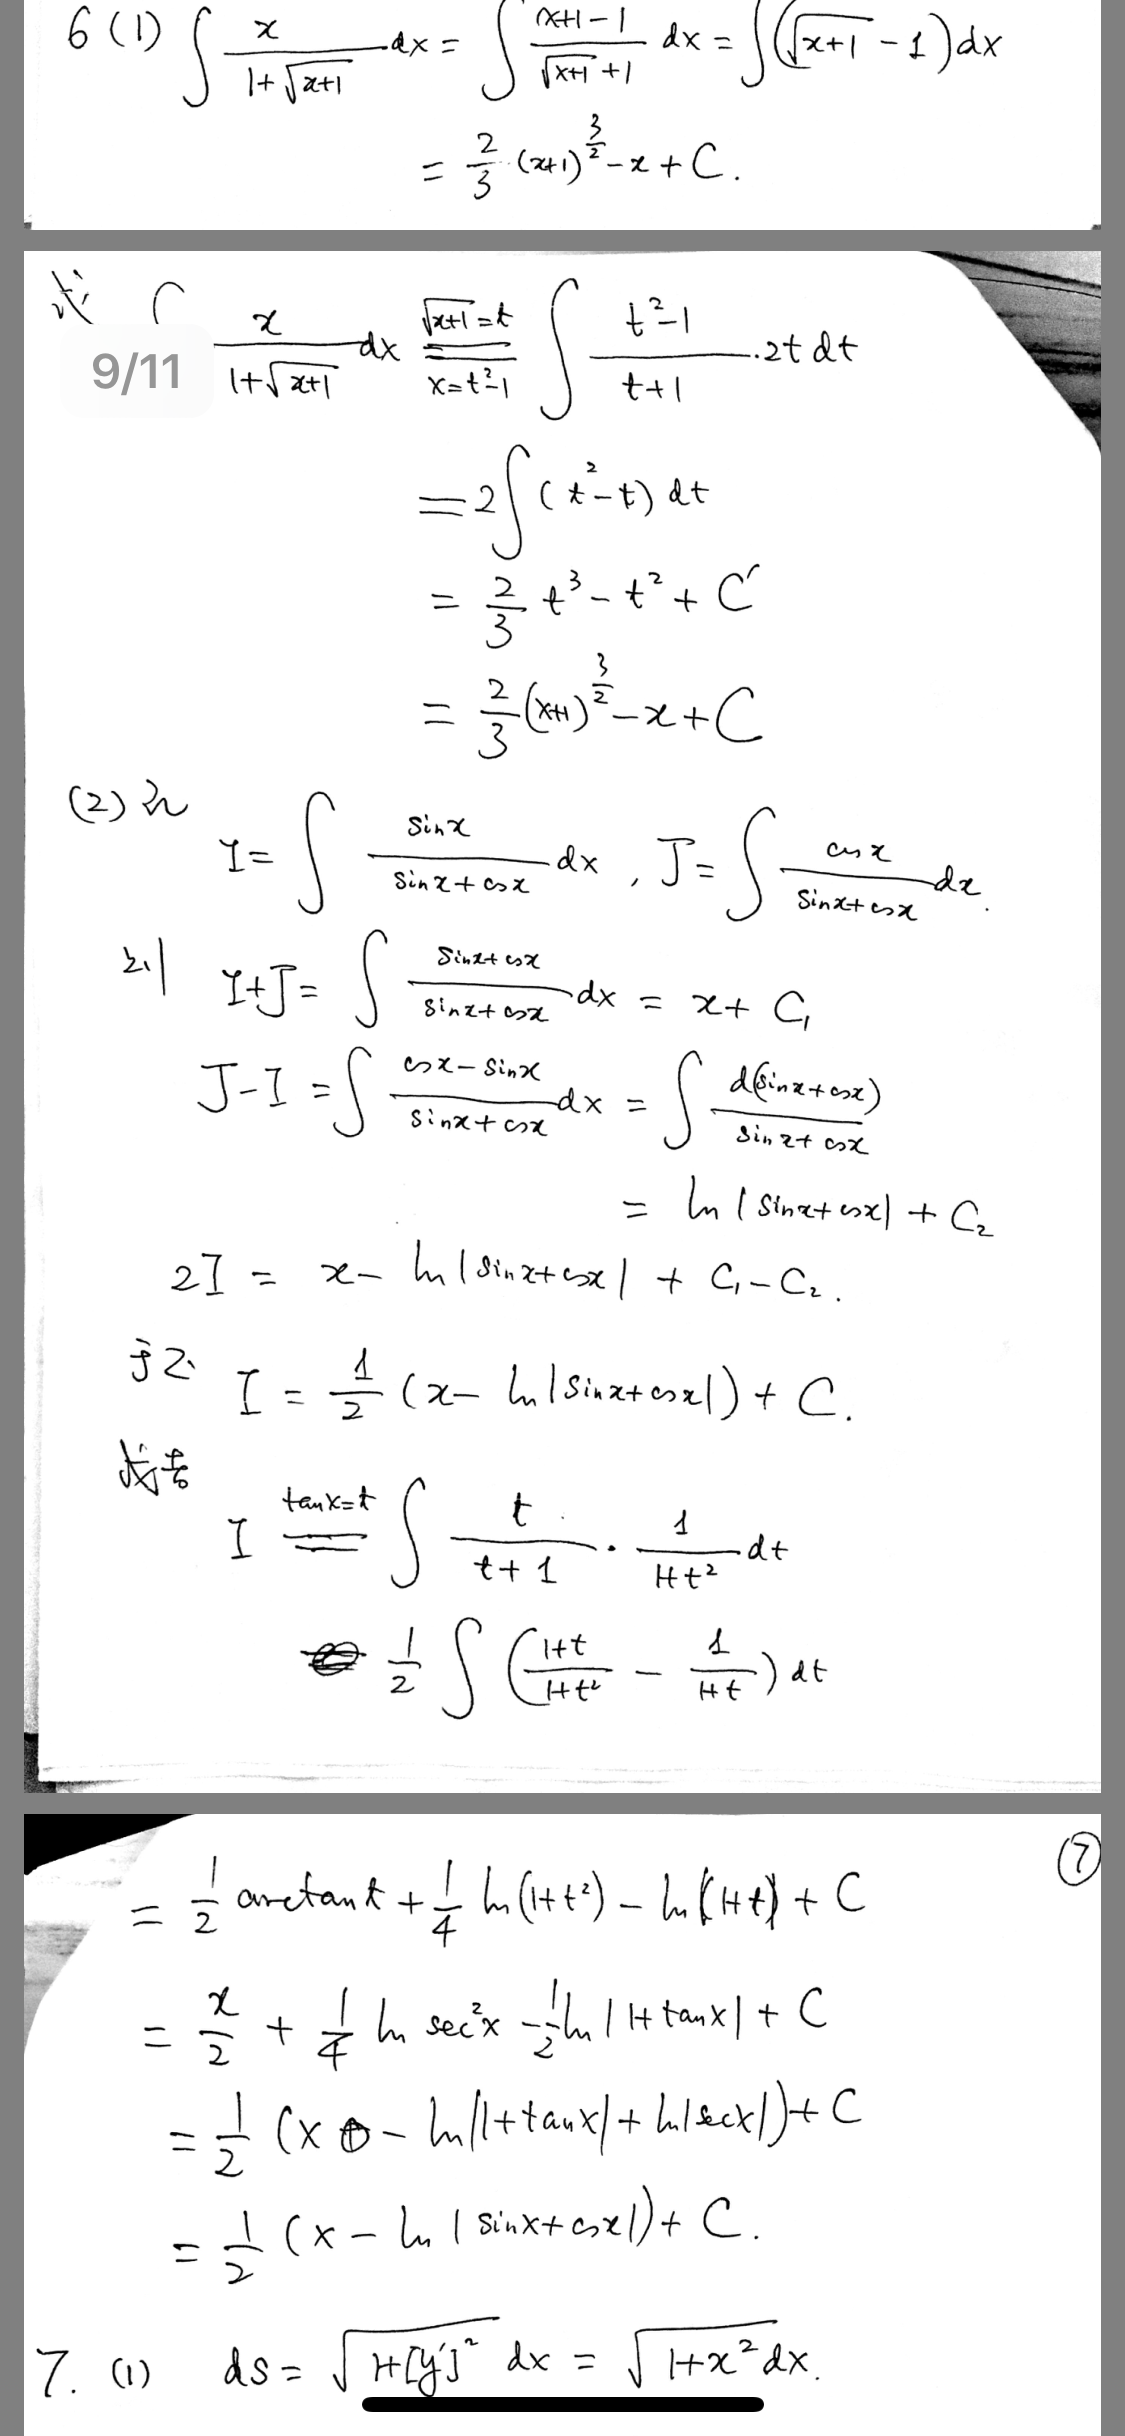 6 (1) ∫ x/(1+√(x+1)) dx = ∫ (x+1-1)/(√(x+1)+1) dx = ∫(√(x+1) - 1)dx
= 2/3 (x+1)^(3/2) - x + C.
或 ∫ x/(1+√(x+1)) dx =(√(x+1)=t, x=t²-1)= ∫ (t²-1)/(t+1) · 2t dt
9/11
= 2∫(t²-t) dt
= 2/3 t³ - t² + C'
= 2/3 (x+1)^(3/2) - x + C
(2) 记 I = ∫ sinx/(sinx+cosx) dx , J = ∫ cosx/(sinx+cosx) dx.
则 I+J = ∫ (sinx+cosx)/(sinx+cosx) dx = x + C₁
J-I = ∫ (cosx-sinx)/(sinx+cosx) dx = ∫ d(sinx+cosx)/(sinx+cosx)
= ln|sinx+cosx| + C₂
2I = x - ln|sinx+cosx| + C₁-C₂.
于是 I = 1/2 (x - ln|sinx+cosx|) + C.
或者
I =(tanx=t)= ∫ t/(t+1) · 1/(1+t²) dt
1/2 ∫ ((1+t)/(1+t²) - 1/(1+t)) dt
⑦
= 1/2 arctan t + 1/4 ln(1+t²) - ln(1+t) + C
= x/2 + 1/4 ln sec²x - 1/2 ln|1+tanx| + C
= 1/2 (x - ln|1+tanx| + ln|secx|) + C
= 1/2 (x - ln|sinx+cosx|) + C.
7. (1) ds = √(1+[y']²) dx = √(1+x²) dx.